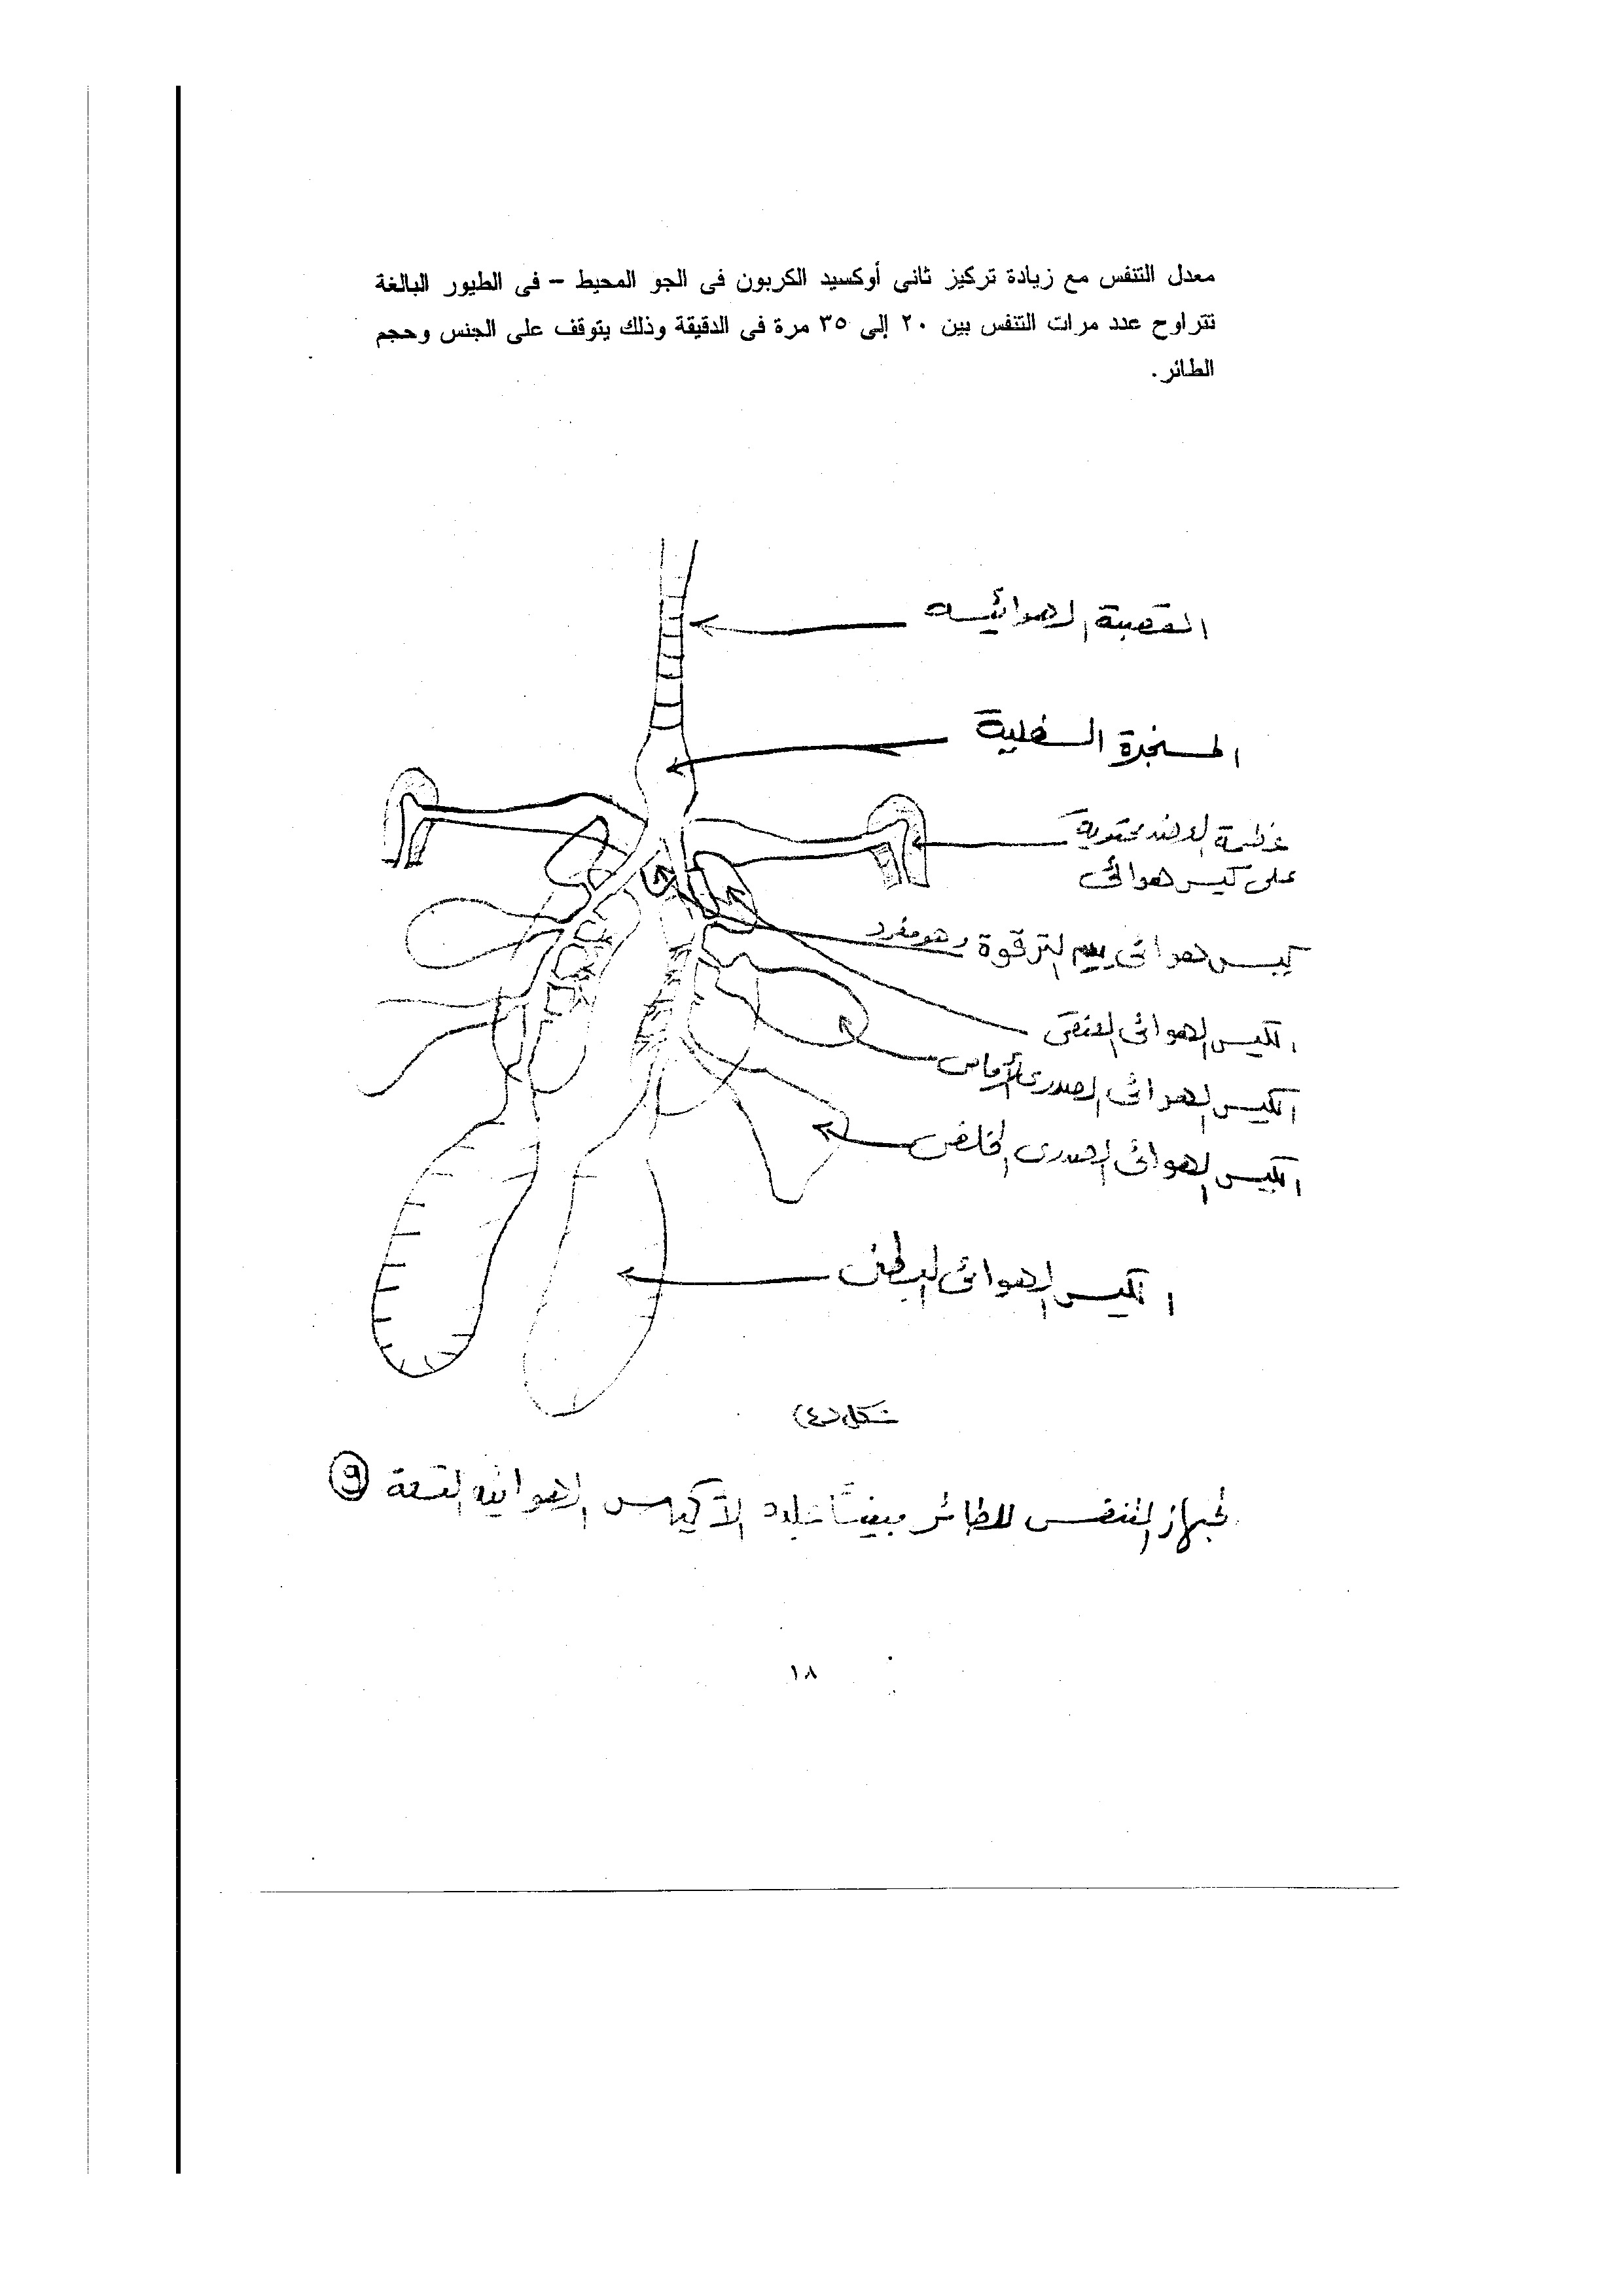 معدل التنفس مع زيادة تركيز ثانى أوكسيد الكربون فى الجو المحيط – فى الطيور البالغة
تتراوح عدد مرات التنفس بين ٢٠ إلى ٣٥ مرة فى الدقيقة وذلك يتوقف على الجنس وحجم
الطائر.
القصبة الهوائية
الحنجرة السفلية
عظمة العضد محتوية
على كيس هوائى
كيس هوائى بين الترقوة وهو مفرد
الكيس الهوائى العنقى
الكيس الهوائى الصدرى الأمامى
الكيس الهوائى الصدرى الخلفى
الكيس الهوائى البطنى
شكل (٤)
الجهاز التنفسى للطائر مبينًا عدد الأكياس الهوائية التسعة ٩
١٨